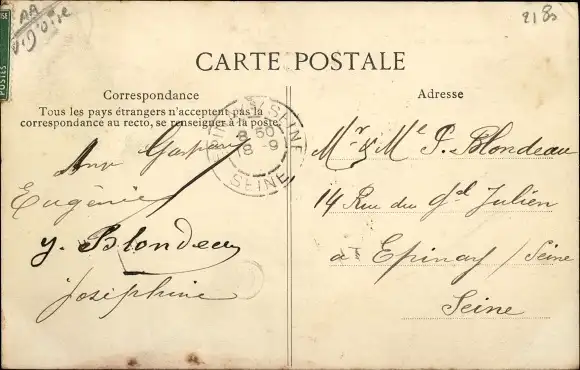 AA
V. d'Oise
2183
POSTES
CARTE POSTALE
Correspondance
Tous les pays étrangers n'acceptent pas la
correspondance au recto, se renseigner à la poste.
Adresse
S/SEINE
8 50
8 - 9
SEINE
Gaspard
Eugénie
y. Blondeau
Joséphine
Mr & Me P. Blondeau
14 Rue du Gal Julien
à Epinay / Seine
Seine